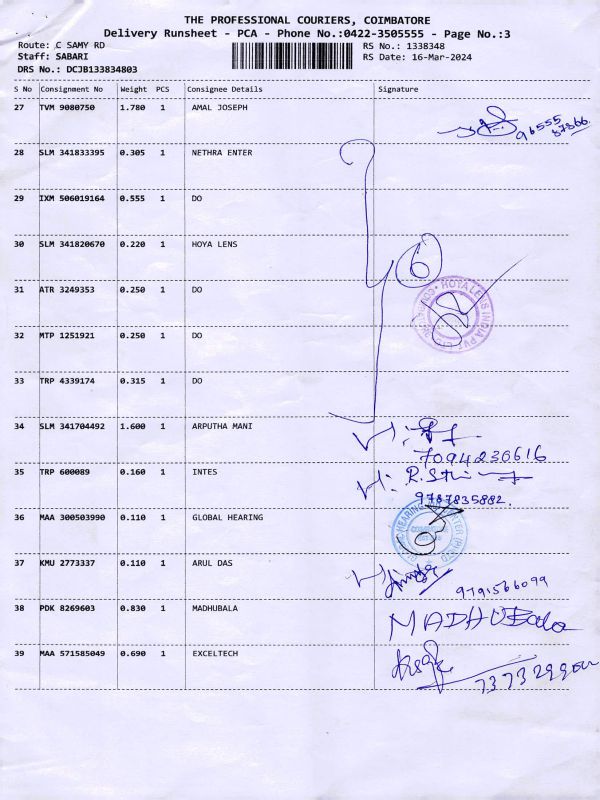 THE PROFESSIONAL COURIERS, COIMBATORE
Delivery Runsheet - PCA - Phone No.:0422-3505555 - Page No.:3
Route: C SAMY RD RS No.: 1338348
Staff: SABARI RS Date: 16-Mar-2024
DRS No.: DCJB133834803
S No Consignment No Weight PCS Consignee Details Signature
27 TVM 9080750 1.780 1 AMAL JOSEPH
96555
87866
28 SLM 341833395 0.305 1 NETHRA ENTER
29 IXM 506019164 0.555 1 DO
30 SLM 341820670 0.220 1 HOYA LENS
6
31 ATR 3249353 0.250 1 DO
HOYA LENS INDIA PVT. LTD
32 MTP 1251921 0.250 1 DO
33 TRP 4339174 0.315 1 DO
34 SLM 341704492 1.600 1 ARPUTHA MANI
7094230616
35 TRP 600089 0.160 1 INTES
9787835882.
36 MAA 300503990 0.110 1 GLOBAL HEARING
HEARING
37 KMU 2773337 0.110 1 ARUL DAS
9791566099
38 PDK 8269603 0.830 1 MADHUBALA
MADHUBala
39 MAA 571585049 0.690 1 EXCELTECH